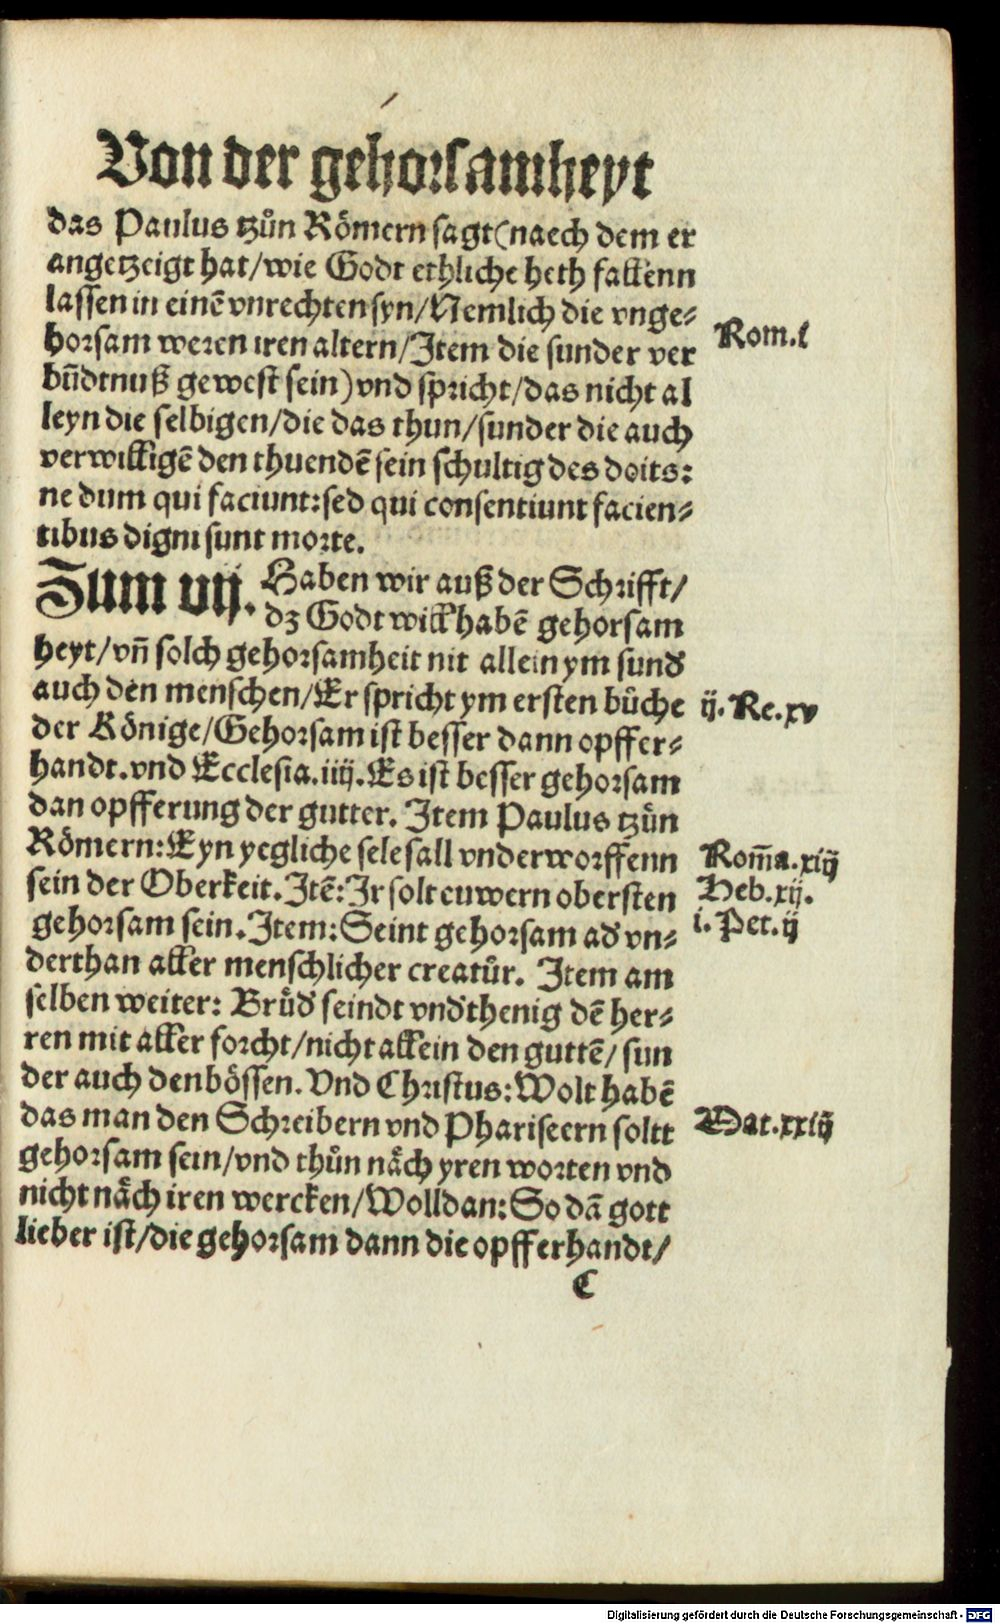 Von der gehorsamheyt
das Paulus tzůn Römern sagt (naech dem er
angetzeigt hat/wie Godt ethliche heth fallenn
lassen in einē vnrechten syn/Nemlich die vnge⸗
horsam weren iren altern/Item die sunder ver
bu̅dtnuß gewest sein) vnd spricht/das nicht al
leyn die selbigen/die das thun/sunder die auch
verwilligē den thuendē sein schultig des doits:
ne dum qui faciunt: sed qui consentiunt facien⸗
tibus digni sunt morte.
Rom.i
Zum vij. Haben wir auß der Schrifft/
dz Godt will habē gehorsam
heyt/vn̄ solch gehorsamheit nit allein ym sund
auch den menschen/Er spricht ym ersten bůche
der Könige/Gehorsam ist besser dann opffer⸗
handt. vnd Ecclesia.iiij. Es ist besser gehorsam
dan opfferung der gutter. Item Paulus tzůn
Römern: Eyn yegliche sele sall vnderworffenn
sein der Oberkeit. Itē: Ir solt euwern obersten
gehorsam sein. Item: Seint gehorsam ad vn⸗
derthan aller menschlicher creatůr. Item am
selben weiter: Brůd seindt vndthenig dē her⸗
ren mit aller forcht/nicht allein den guttē/sun
der auch den bössen. Vnd Christus: Wolt habē
das man den Schreibern vnd Phariseern soltt
gehorsam sein/vnd thůn nåch yren worten vnd
nicht nåch iren wercken/Wolldan: So dā gott
lieber ist/die gehorsam dann die opfferhandt/
ij. Re.xv
Rom̄a.xiij
Heb.xij.
i. Pet.ij
Mat.xxiij
C
Digitalisierung gefördert durch die Deutsche Forschungsgemeinschaft - DFG